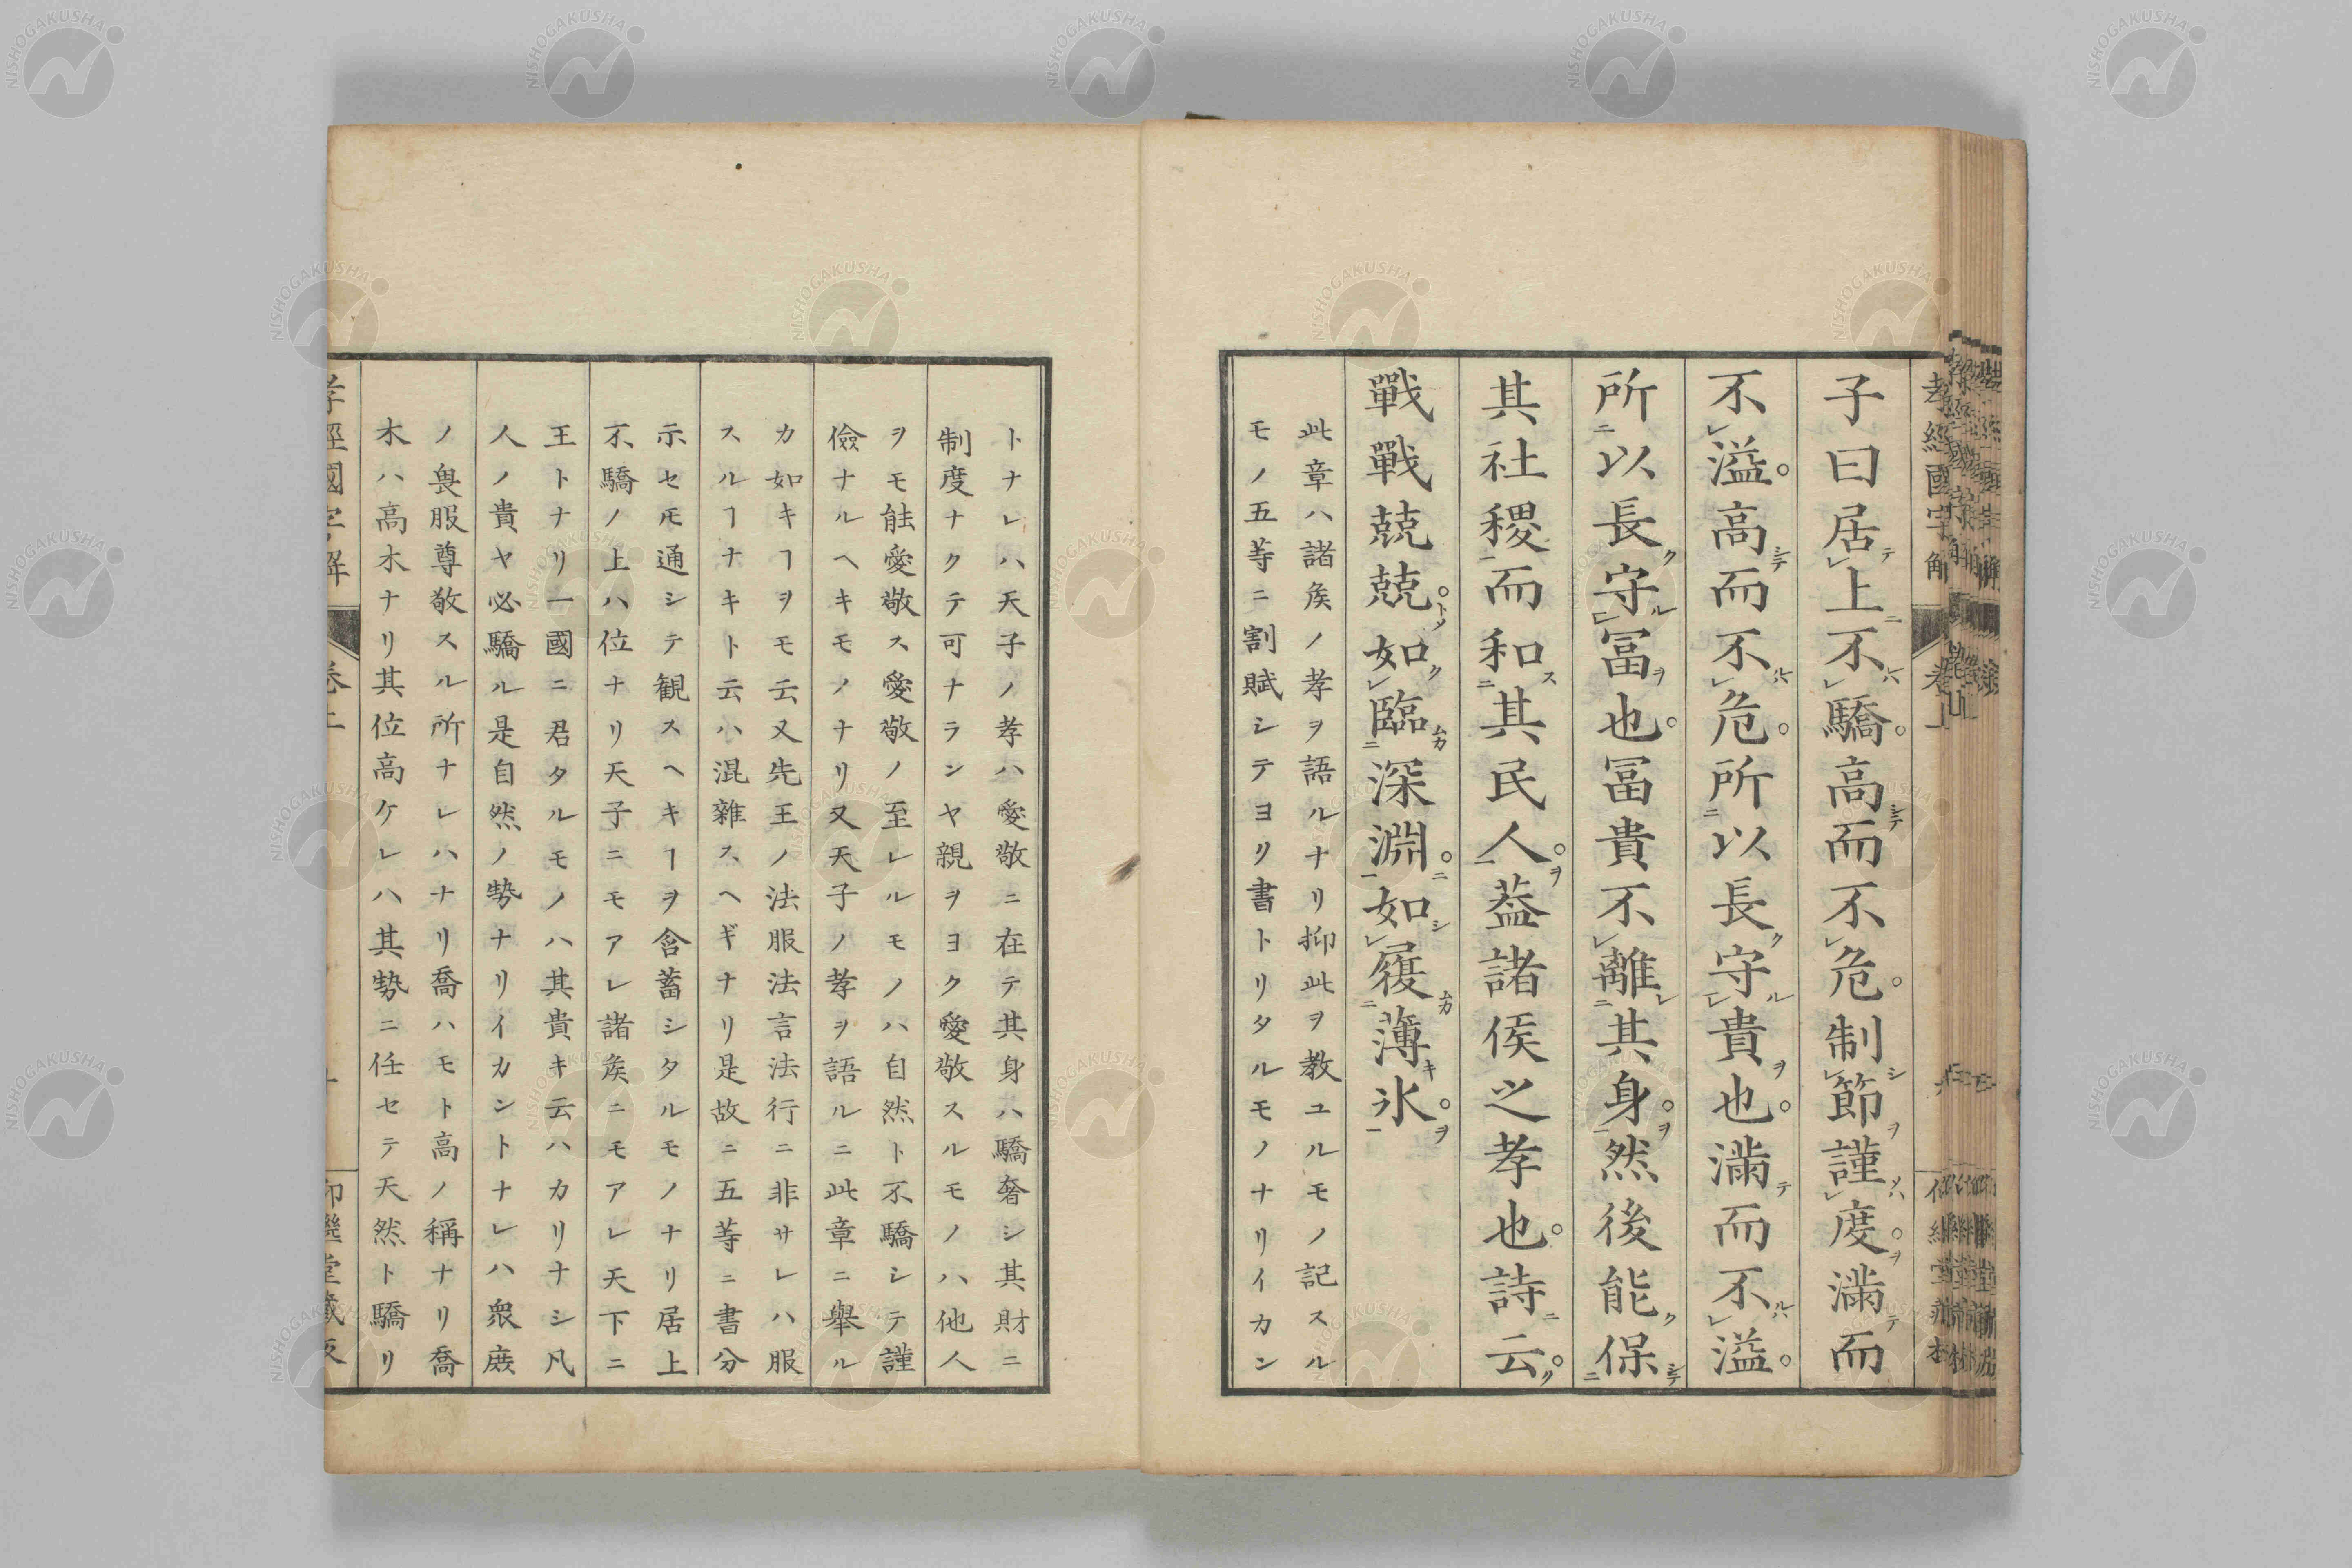 子曰居上不驕。高而不危。制節謹度。滿而
不溢。高而不危。所以長守貴也。滿而不溢。
所以長守冨也。冨貴不離其身。然後能保
其社稷而和其民人。葢諸侯之孝也。詩云。
戰戰兢兢。如臨深淵。如履薄氷。
此章ハ諸矦ノ孝ヲ語ルナリ抑此ヲ教ユルモノ記スル
モノ五等ニ割賦シテヨリ書トリタルモノナリイカン
トナレハ天子ノ孝ハ愛敬ニ在テ其身ハ驕奢シ其財ニ
制度ナクテ可ナランヤ親ヲヨク愛敬スルモノハ他人
ヲモ能愛敬ス愛敬ノ至レルモノハ自然ト不驕シテ謹
儉ナルヘキモノナリ又天子ノ孝ヲ語ルニ此章ニ舉ル
カ如キヿヲモ云又先王ノ法服法言法行ニ非サレハ服
スルヿナキト云ハ混雜スヘギナリ是故ニ五等ニ書分
示セ𪜈通シテ観スヘキヿヲ含蓄シタルモノナリ居上
不驕ノ上ハ位ナリ天子ニモアレ諸矦ニモアレ天下ニ
王トナリ一國ニ君タルモノハ其貴キ云ハカリナシ凡
人ノ貴ヤ必驕ル是自然ノ勢ナリイカントナレハ衆庻
ノ畏服尊敬スル所ナレハナリ喬ハモト高ノ稱ナリ喬
木ハ高木ナリ其位高ケレハ其勢ニ任セテ天然ト驕リ
孝經國字解
卷上
NISHOGAKUSHA